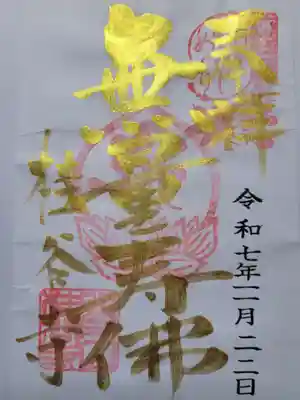 奉拝
無量寿佛
桂谷寺
令和七年二月二二日